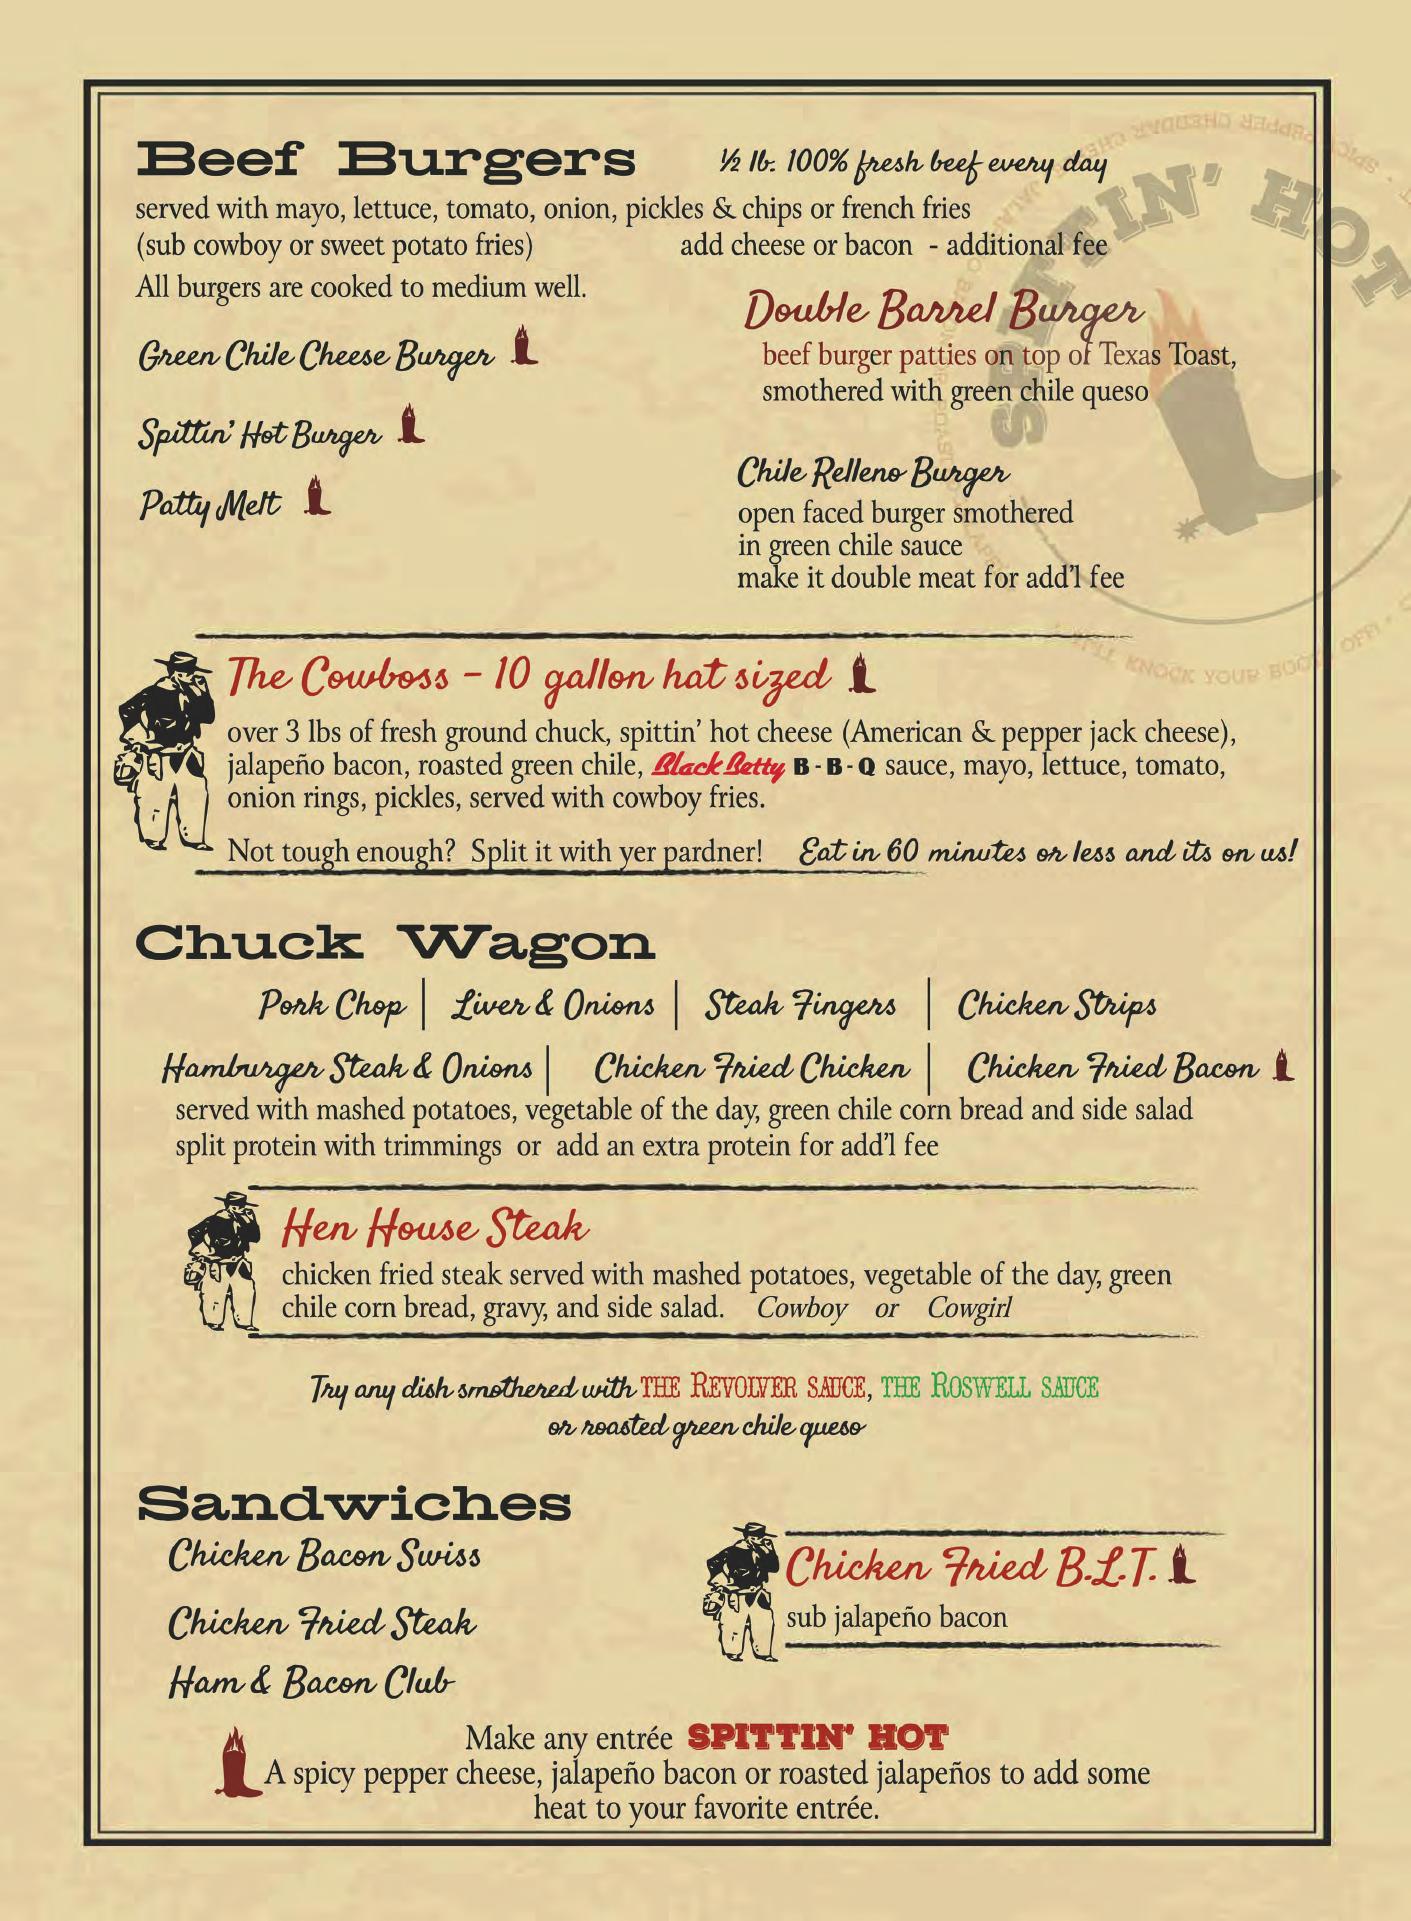 Beef Burgers ½ lb. 100% fresh beef every day
served with mayo, lettuce, tomato, onion, pickles & chips or french fries
(sub cowboy or sweet potato fries) add cheese or bacon - additional fee
All burgers are cooked to medium well.
Green Chile Cheese Burger
Spittin' Hot Burger
Patty Melt
Double Barrel Burger
beef burger patties on top of Texas Toast,
smothered with green chile queso
Chile Relleno Burger
open faced burger smothered
in green chile sauce
make it double meat for add'l fee
SPITTIN' HOT
KNOCK YOUR BOOTS OFF!
The Cowboss - 10 gallon hat sized
over 3 lbs of fresh ground chuck, spittin' hot cheese (American & pepper jack cheese),
jalapeño bacon, roasted green chile, Black Betty B-B-Q sauce, mayo, lettuce, tomato,
onion rings, pickles, served with cowboy fries.
Not tough enough? Split it with yer pardner! Eat in 60 minutes or less and its on us!
Chuck Wagon
Pork Chop | Liver & Onions | Steak Fingers | Chicken Strips
Hamburger Steak & Onions | Chicken Fried Chicken | Chicken Fried Bacon
served with mashed potatoes, vegetable of the day, green chile corn bread and side salad
split protein with trimmings or add an extra protein for add'l fee
Hen House Steak
chicken fried steak served with mashed potatoes, vegetable of the day, green
chile corn bread, gravy, and side salad. Cowboy or Cowgirl
Try any dish smothered with THE REVOLVER SAUCE, THE ROSWELL SAUCE
or roasted green chile queso
Sandwiches
Chicken Bacon Swiss
Chicken Fried Steak
Ham & Bacon Club
Chicken Fried B.L.T.
sub jalapeño bacon
Make any entrée SPITTIN' HOT
A spicy pepper cheese, jalapeño bacon or roasted jalapeños to add some
heat to your favorite entrée.